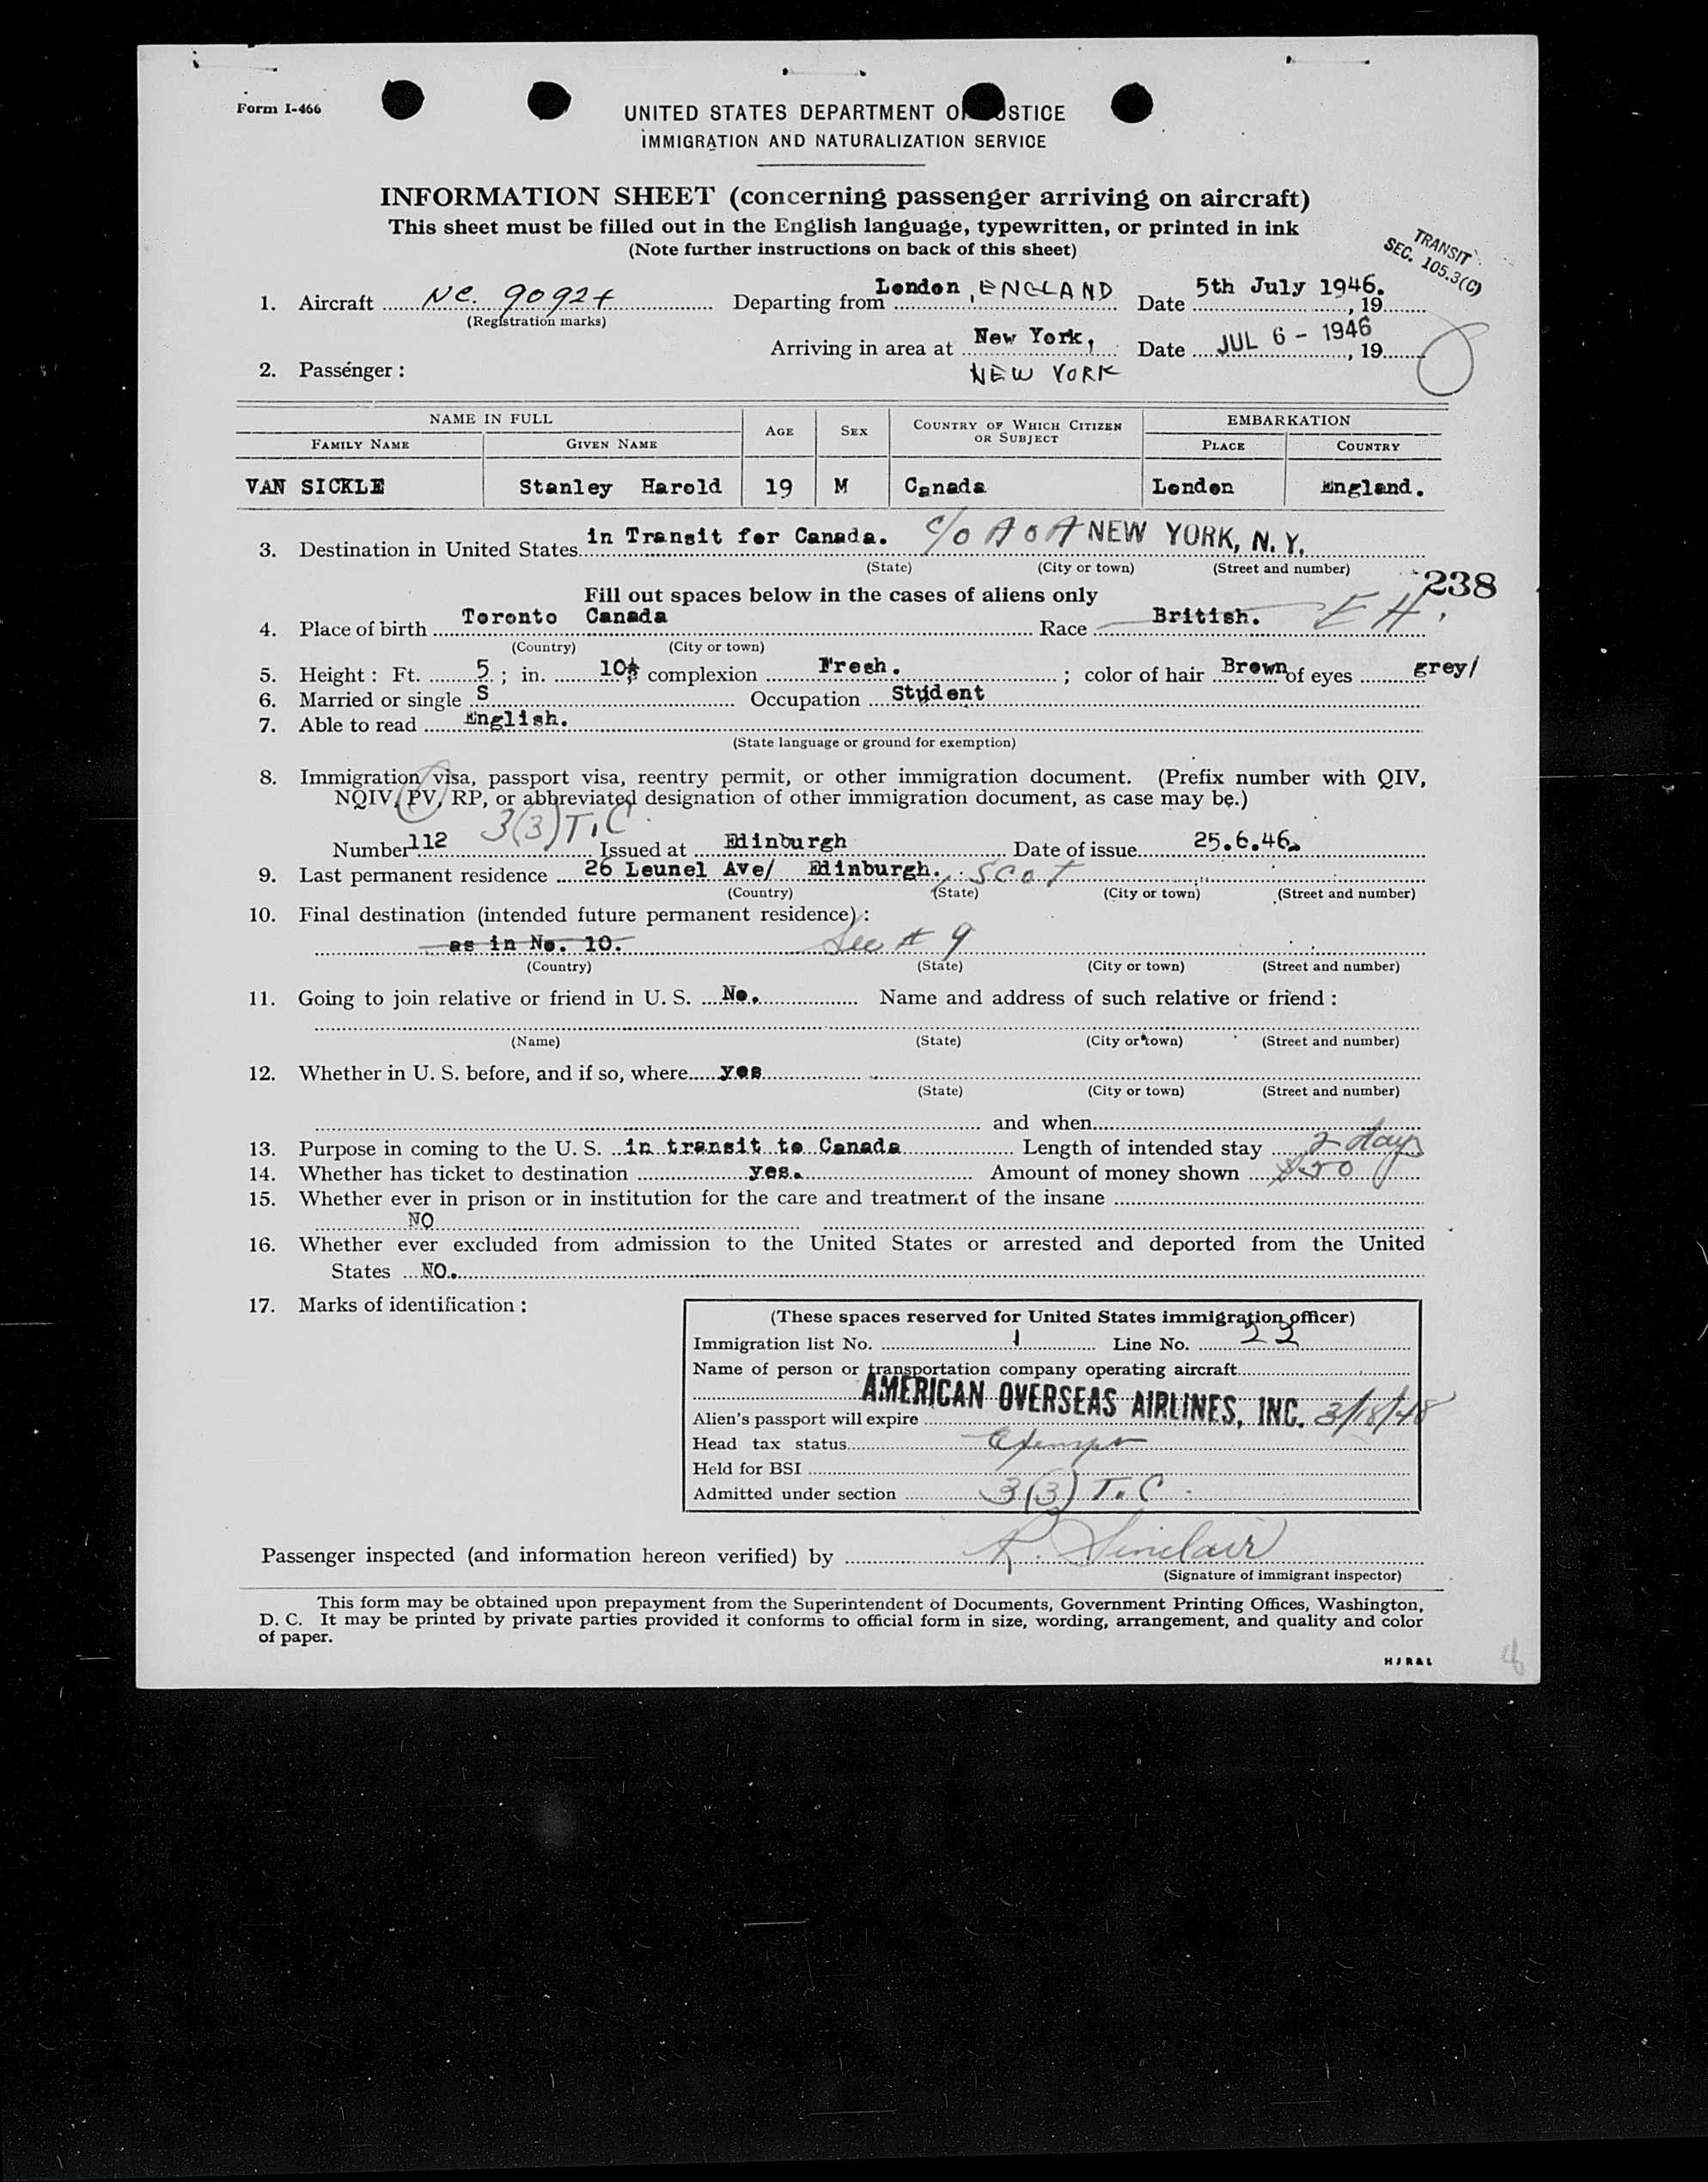 Form I-466
UNITED STATES DEPARTMENT OF JUSTICE
IMMIGRATION AND NATURALIZATION SERVICE
INFORMATION SHEET (concerning passenger arriving on aircraft)
This sheet must be filled out in the English language, typewritten, or printed in ink
(Note further instructions on back of this sheet)
TRANSIT
SEC. 105.3(C)
1. Aircraft NC. 9092+ Departing from London, ENGLAND Date 5th July 1946. , 19
(Registration marks)
Arriving in area at New York, Date JUL 6 - 1946 , 19
NEW YORK
2. Passenger :
NAME IN FULL AGE SEX COUNTRY OF WHICH CITIZEN OR SUBJECT EMBARKATION
FAMILY NAME GIVEN NAME PLACE COUNTRY
VAN SICKLE Stanley Harold 19 M Canada London England.
3. Destination in United States in Transit for Canada. C/O A O A NEW YORK, N. Y.
(State) (City or town) (Street and number)
238
Fill out spaces below in the cases of aliens only
4. Place of birth Toronto Canada Race British. E H.
(Country) (City or town)
5. Height : Ft. 5 ; in. 10½ complexion Fresh. ; color of hair Brown of eyes grey/
6. Married or single S Occupation Student
7. Able to read English.
(State language or ground for exemption)
8. Immigration visa, passport visa, reentry permit, or other immigration document. (Prefix number with QIV,
NQIV, PV, RP, or abbreviated designation of other immigration document, as case may be.)
3(3) T.C.
Number 112 Issued at Edinburgh Date of issue 25.6.46.
9. Last permanent residence 26 Leunel Ave/ Edinburgh. SCOT
(Country) (State) (City or town) (Street and number)
10. Final destination (intended future permanent residence) :
as in No. 10. See # 9
(Country) (State) (City or town) (Street and number)
11. Going to join relative or friend in U. S. No. Name and address of such relative or friend :
(Name) (State) (City or town) (Street and number)
12. Whether in U. S. before, and if so, where yes
(State) (City or town) (Street and number)
and when
13. Purpose in coming to the U. S. in transit to Canada Length of intended stay 2 days
14. Whether has ticket to destination yes. Amount of money shown $50
15. Whether ever in prison or in institution for the care and treatment of the insane
NO
16. Whether ever excluded from admission to the United States or arrested and deported from the United
States NO.
17. Marks of identification :
(These spaces reserved for United States immigration officer)
Immigration list No. 1 Line No. 22
Name of person or transportation company operating aircraft
AMERICAN OVERSEAS AIRLINES, INC.
Alien's passport will expire 3/18/48
Head tax status Exempt
Held for BSI
Admitted under section 3(3) T.C.
Passenger inspected (and information hereon verified) by R. Sinclair
(Signature of immigrant inspector)
This form may be obtained upon prepayment from the Superintendent of Documents, Government Printing Offices, Washington,
D. C. It may be printed by private parties provided it conforms to official form in size, wording, arrangement, and quality and color
of paper.
HJR&L